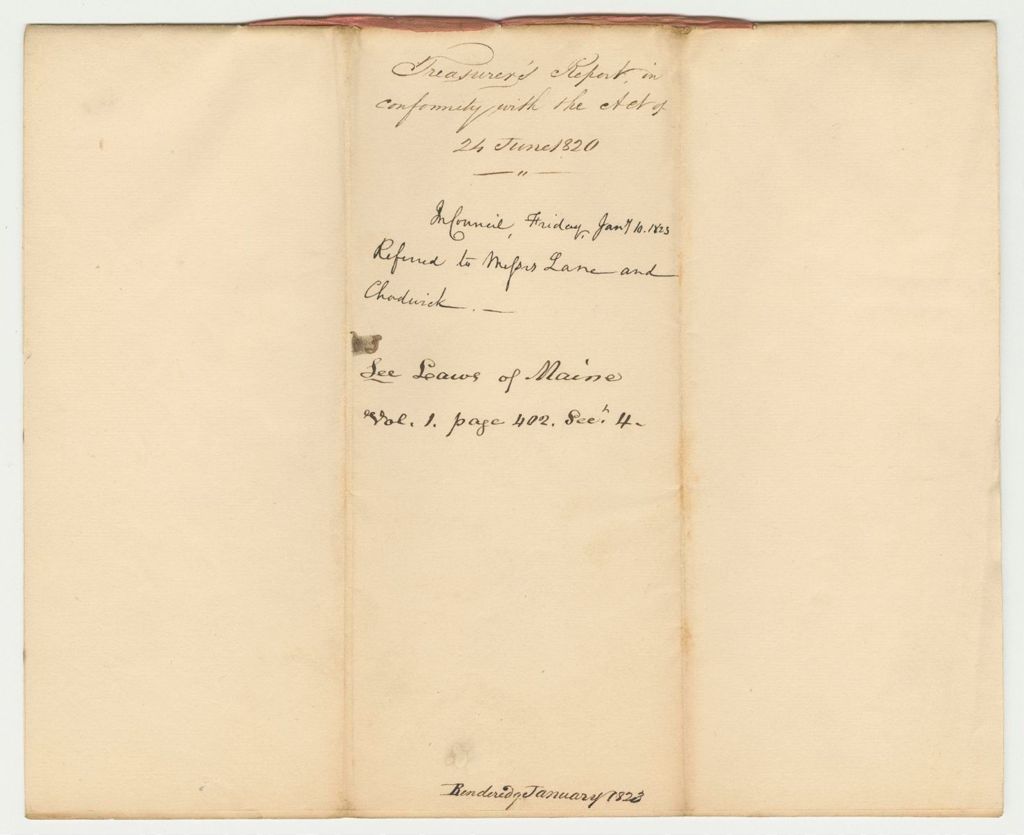 Treasurer's Report, in
conformity with the Act of
24 June 1820
In Council, Friday, Jany 10. 1823
Referred to Messrs Lane and
Chadwick. —
See Laws of Maine
Vol. 1. page 402. Secn. 4.
Rendered January 1823